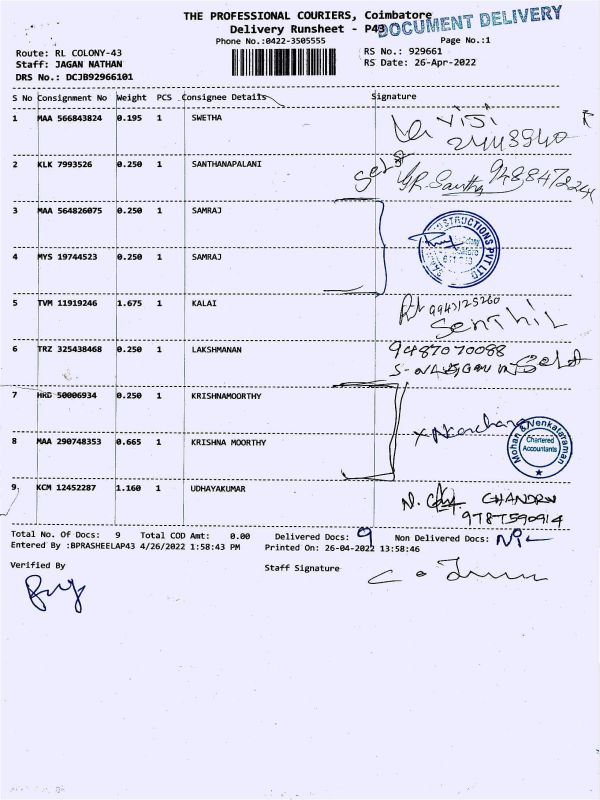 THE PROFESSIONAL COURIERS, Coimbatore
DOCUMENT DELIVERY
Delivery Runsheet - P43
Phone No.:0422-3505555 Page No.:1
Route: RL COLONY-43 RS No.: 929661
Staff: JAGAN NATHAN RS Date: 26-Apr-2022
DRS No.: DCJB92966101
S No Consignment No Weight PCS Consignee Details Signature
1 MAA 566843824 0.195 1 SWETHA
2 KLK 7993526 0.250 1 SANTHANAPALANI
3 MAA 564826075 0.250 1 SAMRAJ
4 MYS 19744523 0.250 1 SAMRAJ
5 TVM 11919246 1.675 1 KALAI
SENTHIL
6 TRZ 325438468 0.250 1 LAKSHMANAN 9487070088
7 HRD 50006934 0.250 1 KRISHNAMOORTHY
8 MAA 290748353 0.665 1 KRISHNA MOORTHY
Mohan & Venkataraman
Chartered
Accountants
9 KCM 12452287 1.160 1 UDHAYAKUMAR CHANDRU
9787590914
Total No. Of Docs: 9 Total COD Amt: 0.00 Delivered Docs: 9 Non Delivered Docs: NIL
Entered By :BPRASHEELAP43 4/26/2022 1:58:43 PM Printed On: 26-04-2022 13:58:46
Verified By Staff Signature